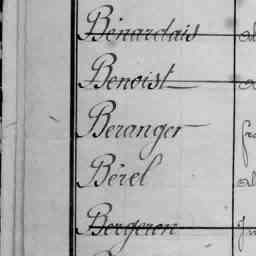 Bénardais
Benoist
Beranger
Bérel
Bergeron